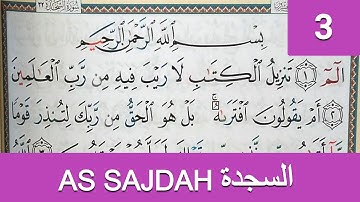 3
بِسْمِ اللَّهِ الرَّحْمَٰنِ الرَّحِيمِ
الٓمٓ ١ تَنزِيلُ الْكِتَٰبِ لَا رَيْبَ فِيهِ مِن رَّبِّ الْعَٰلَمِينَ
٢ أَمْ يَقُولُونَ افْتَرَىٰهُ ۚ بَلْ هُوَ الْحَقُّ مِن رَّبِّكَ لِتُنذِرَ قَوْمًا
AS SAJDAH السجدة